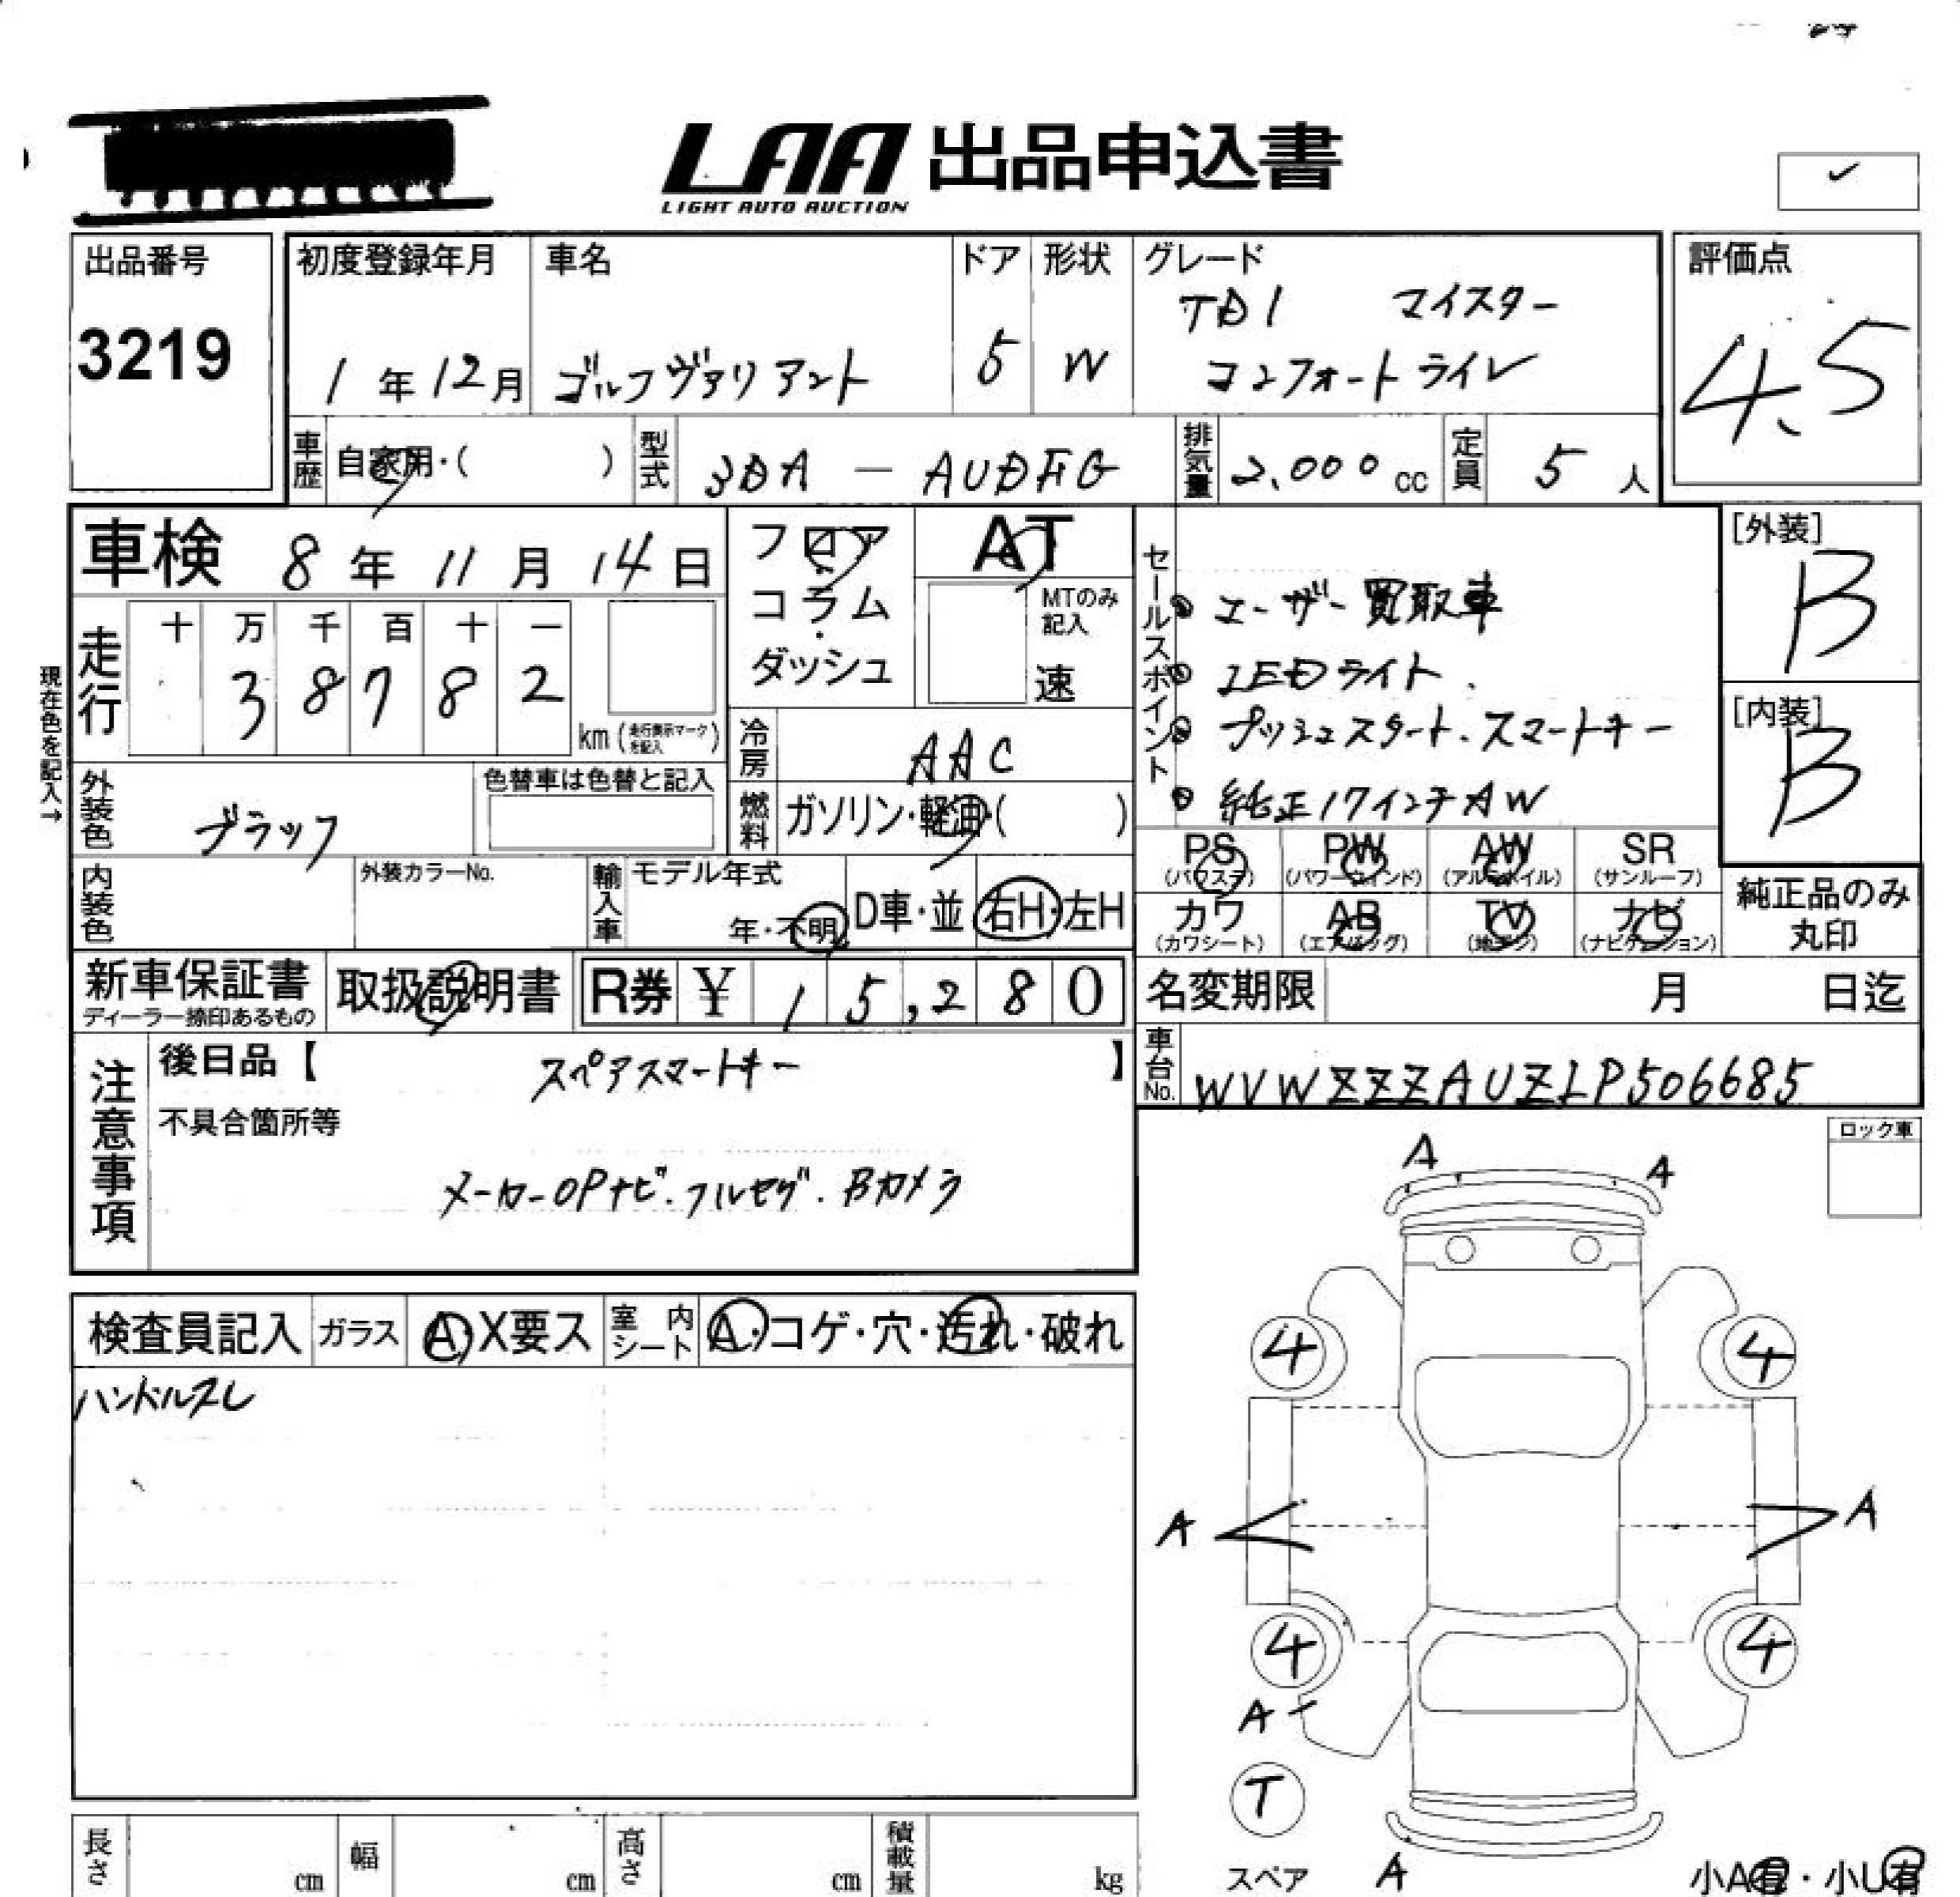 LAA 出品申込書
LIGHT AUTO AUCTION
出品番号
3219
初度登録年月
1年12月
車名
ゴルフヴァリアント
ドア
5
形状
W
グレード
TDI マイスター
コンフォートライン
評価点
4.5
車歴 自家用・( )
型式 3DA - AUDFG
排気量 2,000 cc
定員 5 人
車検 8年11月14日
走行
十 万 千 百 十 一
3 8 7 8 2
km (走行表示マークを記入)
現在色を記入→
外装色 ブラック
色替車は色替と記入
内装色
外装カラーNo.
フロア
コラム
・
ダッシュ
AT
MTのみ
記入
速
冷房 AAC
燃料 ガソリン・軽油・( )
輸入車 モデル年式
年・不明
D車・並 右H・左H
セールスポイント
ユーザー買取車
LEDライト
プッシュスタート・スマートキー
純正17インチAW
[外装]
B
[内装]
B
PS (パワステ)
PW (パワーウィンド)
AW (アルミホイル)
SR (サンルーフ)
カワ (カワシート)
AB (エアバッグ)
TV (地デジ)
ナビ (ナビゲーション)
純正品のみ
丸印
新車保証書
ディーラー捺印あるもの
取扱説明書
R券 ¥ 15,280
名変期限 月 日迄
車台No. WVWZZZAUZLP506685
注意事項
後日品【 スペアスマートキー 】
不具合箇所等
メーカーOPナビ・フルセグ・Bカメラ
ロック車
検査員記入
ガラス A・X要ス
室内シート A・コゲ・穴・汚れ・破れ
ハンドルスレ
A
A
4
4
A
A
4
4
A
T
スペア
A
小A有・小U有
長さ cm
幅 cm
高さ cm
積載量 kg